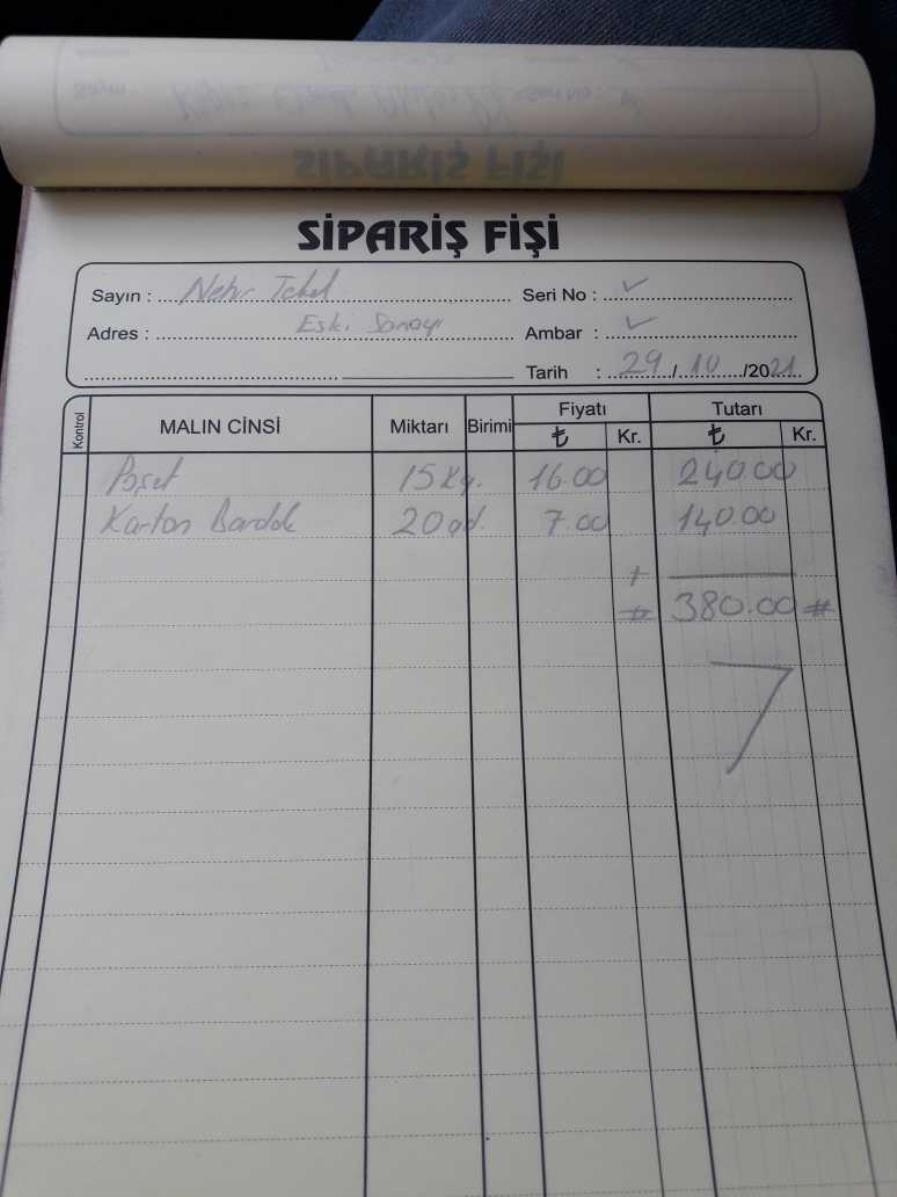 SİPARİŞ FİŞİ
SİPARİŞ FİŞİ
Sayın : Nehir Tekel Seri No : ✓
Adres : Eski Sanayi Ambar : ✓
Tarih : 29/10/2021
Kontrol MALIN CİNSİ Miktarı Birimi Fiyatı ₺ Kr. Tutarı ₺ Kr.
Poşet 15 Kg. 16.00 240.00
Karton Bardak 20 ad. 7.00 140.00
+
# 380.00 #